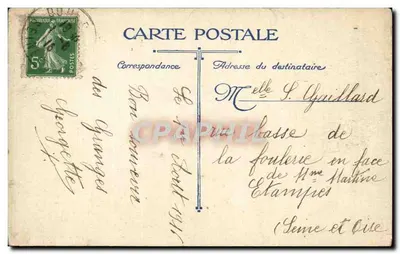 CARTE POSTALE
Correspondance
Adresse du destinataire
5c
POSTES
Le 10 Août 1911
Bon souvenir
des Granges
Georgette
Melle S. Gaillard
rue basse de
la foulerie en face
de Mme Martine
Etampes
(Seine et Oise
CPARAMA